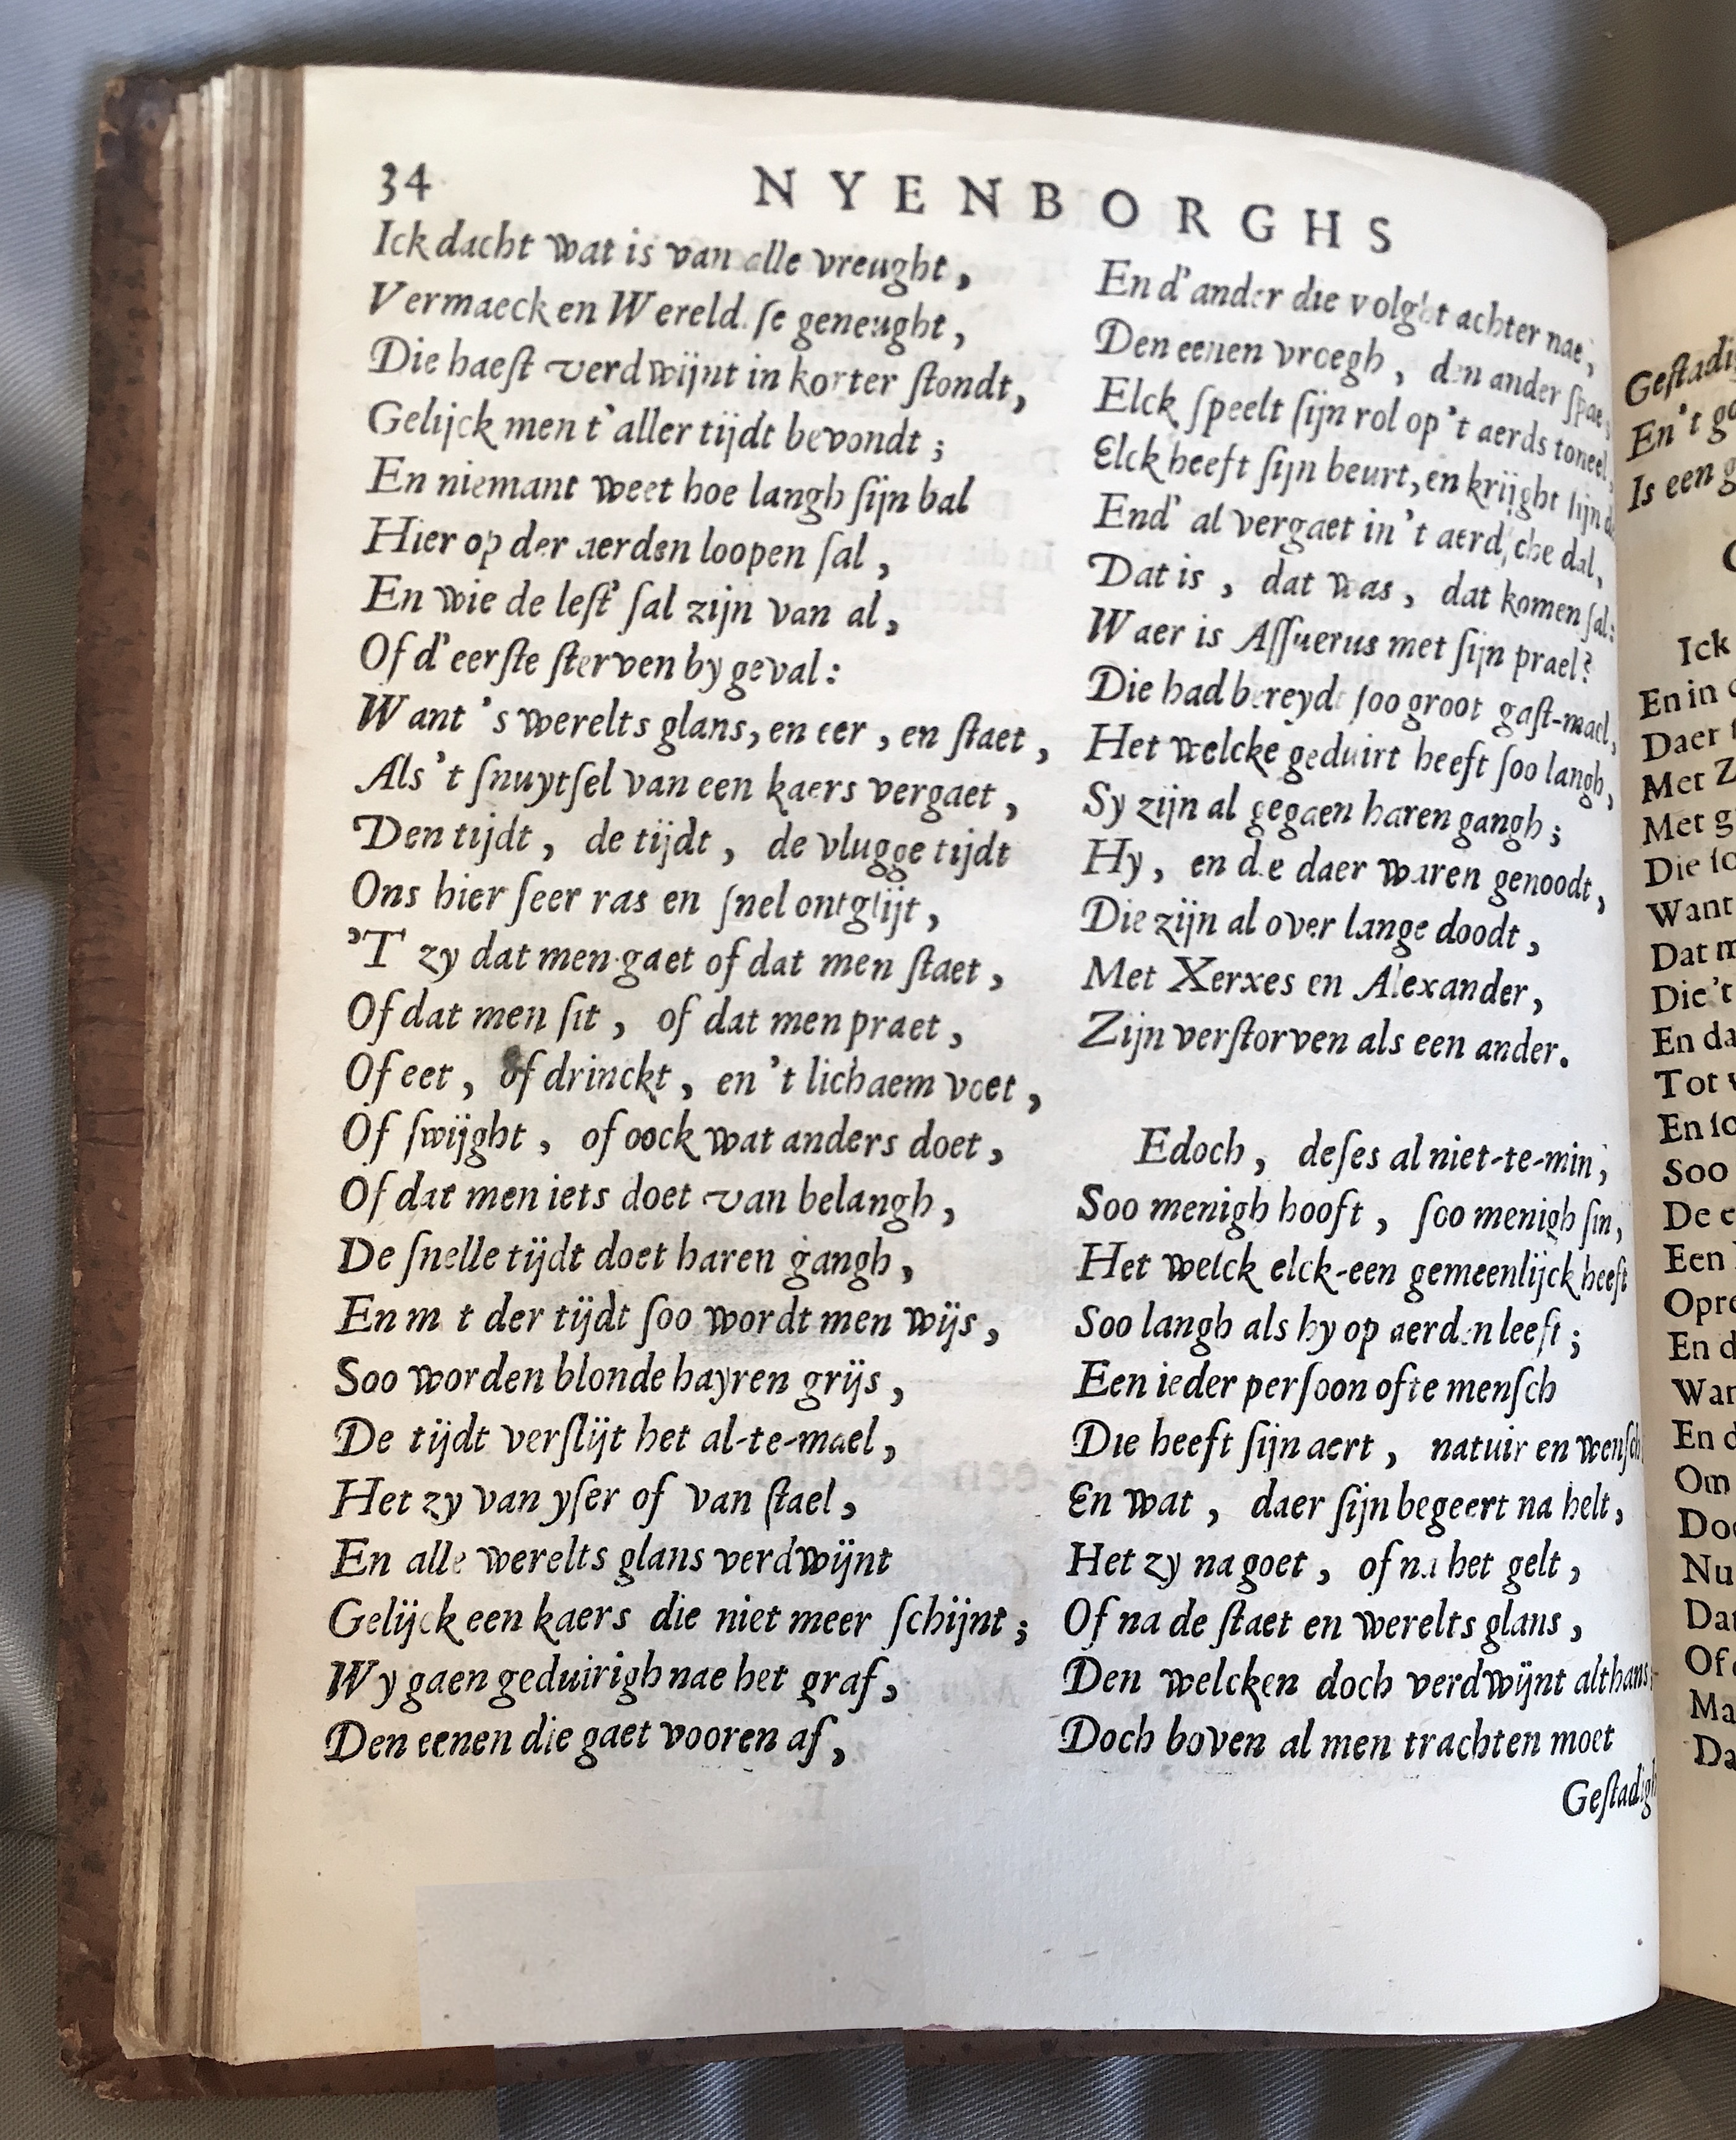 34
NYENBORGHS
Ick dacht wat is van alle vreught,
Vermaeck en Wereld.ſe geneught,
Die haeſt verdwijnt in korter ſtondt,
Gelijck men t'aller tijdt bevondt;
En niemant weet hoe langh ſijn bal
Hier op der aerden loopen ſal,
En wie de leſt' ſal zijn van al,
Of d'eerſte ſterven by geval:
Want 's werelts glans, en eer, en ſtaet,
Als 't ſnuytſel van een kaers vergaet,
Den tijdt, de tijdt, de vlugge tijdt
Ons hier ſeer ras en ſnel ontglijt,
'T zy dat men gaet of dat men ſtaet,
Of dat men ſit, of dat men praet,
Of eet, of drinckt, en 't lichaem voet,
Of ſwijght, of oock wat anders doet,
Of dat men iets doet van belangh,
De ſnelle tijdt doet haren gangh,
En m t der tijdt ſoo wordt men wijs,
Soo worden blonde hayren grijs,
De tijdt verſlijt het al-te-mael,
Het zy van yſer of van ſtael,
En alle werelts glans verdwijnt
Gelijck een kaers die niet meer ſchijnt;
Wy gaen geduirigh nae het graf,
Den eenen die gaet vooren af,
En d'ander die volght achter nae,
Den eenen vroegh, den ander ſpae,
Elck ſpeelt ſijn rol op 't aerds toneel,
Elck heeft ſijn beurt, en krijght ſijn
End' al vergaet in 't aerdſche dal,
Dat is, dat was, dat komen ſal:
Waer is Aſſuerus met ſijn prael?
Die had bereydt ſoo groot gaſt-mael,
Het welcke geduirt heeft ſoo langh,
Sy zijn al gegaen haren gangh;
Hy, en die daer waren genoodt,
Die zijn al over lange doodt,
Met Xerxes en Alexander,
Zijn verſtorven als een ander.
Edoch, deſes al niet-te-min,
Soo menigh hooft, ſoo menigh ſin,
Het welck elck-een gemeenlijck heeft
Soo langh als hy op aerden leeft;
Een ieder perſoon ofte menſch
Die heeft ſijn aert, natuir en wenſch
En wat, daer ſijn begeert na helt,
Het zy na goet, of na het gelt,
Of na de ſtaet en werelts glans,
Den welcken doch verdwijnt althans,
Doch boven al men trachten moet
Geſtadigh
Geſtadi
En't g
Is een g
Ick
En in
Daer
Met Z
Met g
Die ſo
Want
Dat m
Die 't
En da
Tot
En ſo
Soo
De e
Een
Opre
En d
War
En d
Om
Doc
Nu
Dat
Of
Ma
Da